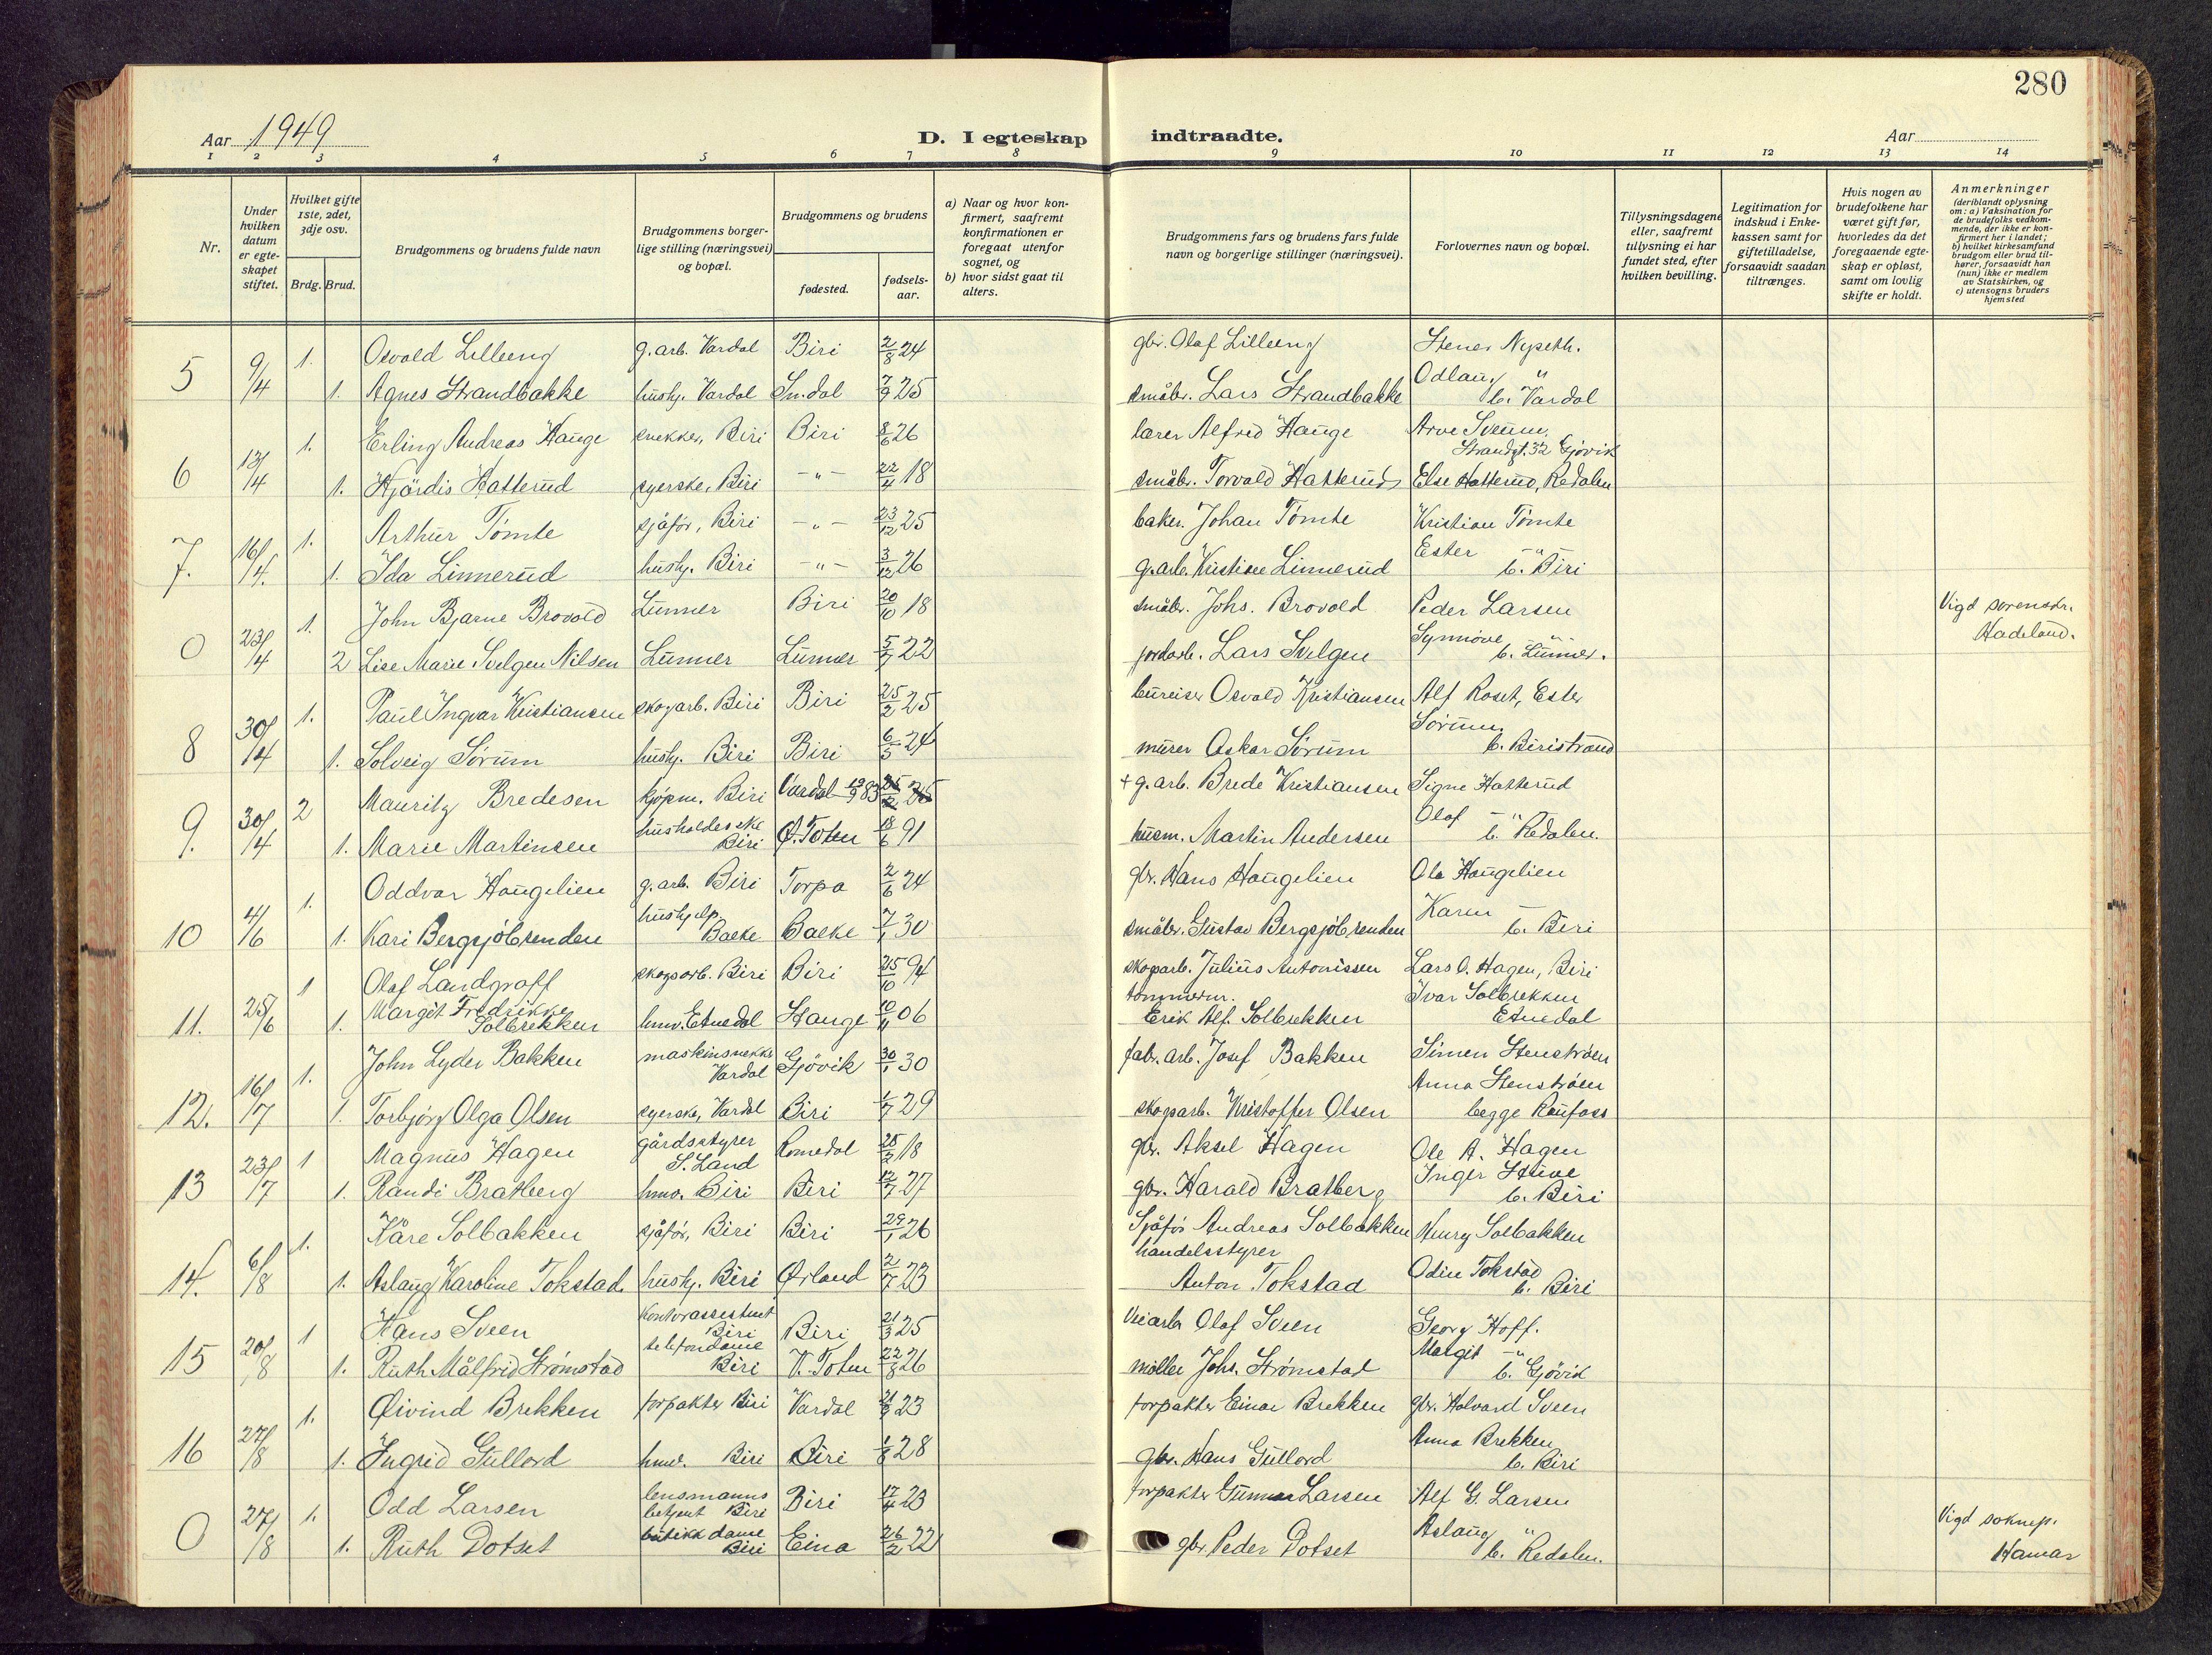 280
Aar 1949
D. I egteskap indtraadte.
Aar
1 2 3 4 5 6 7 8 9 10 11 12 13 14
Nr.
Under hvilken datum er egteskapet stiftet.
Hvilket gifte 1ste, 2det, 3dje osv.
Brdg. Brud.
Brudgommens og brudens fulde navn
Brudgommens borgerlige stilling (næringsvei) og bopæl.
Brudgommens og brudens
fødested.
fødselsaar.
a) Naar og hvor konfirmert, saafremt konfirmationen er foregaat utenfor sognet, og
b) hvor sidst gaat til alters.
Brudgommens fars og brudens fars fulde navn og borgerlige stillinger (næringsvei).
Forlovernes navn og bopæl.
Tillysningsdagene eller, saafremt tillysning ei har fundet sted, efter hvilken bevilling.
Legitimation for indskud i Enkekassen samt for giftetilladelse, forsaavidt saadan tiltrænges.
Hvis nogen av brudefolkene har været gift før, hvorledes da det foregaaende egteskap er opløst, samt om lovlig skifte er holdt.
Anmerkninger (deriblandt oplysning om: a) Vaksination for de brudefolks vedkommende, der ikke er konfirmert her i landet; b) hvilket kirkesamfund brudgom eller brud tilhører, forsaavidt han (hun) ikke er medlem av Statskirken, og c) utensogns bruders hjemsted
5 9/4 1. Osvald Lilleeng g.arb. Vardal Biri 2/8 24 gbr. Olaf Lilleeng Stener Nyseth.
1. Agnes Strandbakke hushj. Vardal Sn.dal 7/9 25 småbr. Lars Strandbakke Odlaug " b. Vardal
6 13/4 1. Erling Andreas Hauge snekker, Biri Biri 8/6 26 lærer Alfred Hauge Arve Sveum, Strandgt. 32 Gjøvik
1. Hjördis Hatterud syerske, Biri -"- 22/4 18 småbr. Torvald Hatterud Else Hatterud, Redalen
7. 16/4 1. Arthur Tömte sjåför, Biri -"- 23/12 25 baker. Johan Tömte Kristian Tömte
1. Ida Linnerud hushj. Biri -"- 3/12 26 g.arb. Kristian Linnerud Ester -"- b. Biri
0 23/4 1. John Bjarne Brovold Lunner Biri 20/10 18 småbr. Johs. Brovold Peder Larsen Vigd sorenskr.
2 Lise Marie Svelgen Nilsen Lunner Lunner 5/7 22 jordarb. Lars Svelgen Synnöve -"- b. Lunner. Hadeland.
8 30/4 1. Paul Ingvar Kristiansen skogarb. Biri Biri 25/2 25 bureiser Osvald Kristiansen Alf Roset, Ester
1. Solveig Sörum hushj. Biri Biri 6/5 24 murer Oskar Sörum Sörum, b. Biristrand
9. 30/4 2 Mauritz Bredesen kjöpm. Biri Vardal 13/9 83 + g.arb. Brede Kristiansen Signe Hatterud
1. Marie Martinsen husholderske Biri Ø. Toten 18/6 91 husm. Martin Andersen Olaf -"- b. Redalen.
10 4/6 1. Oddvar Haugelien g.arb. Biri Torpa 2/6 24 gbr. Hans Haugelien Ole Haugelien
1. Kari Bergsjöbrenden hushjelp, Bøeke Bøeke 7/1 30 småbr. Gustav Bergsjöbrenden Karen — b. Biri
11. 25/6 1 Olaf Landgraff skogsarb. Biri Biri 25/10 94 skogarb. Julius Antonissen Lars O. Hagen, Biri
1. Margit Fredrikke Solbrekken hmv. Etnedal Stange 10/11 06 tömmerm. Erik Alf. Solbrekken Ivar Solbrekken Etnedal
12. 16/7 1. John Lyder Bakken maskinsnekker Vardal Gjövik 30/1 30 fabr. arb. Josef Bakken Simen Stenströen
1. Torbjörg Olga Olsen syerske, Vardal Biri 1/7 29 skogsarb. Kristoffer Olsen Anna Stenströen begge Raufoss
13 23/7 1 Magnus Hagen gårdsstyrer S. Land Romedal 25/2 18 gbr. Aksel Hagen Ole A. Hagen
1. Randi Bratberg hmv. Biri Biri 12/7 27 gbr. Harald Bratberg Inger Stuve b. Biri
14. 6/8 1. Kåre Solbakken sjåför, Biri Biri 29/1 26 Sjåför Andreas Solbakken Henry Solbakken
1. Aslaug Karoline Tokstad hushj. Biri Ørland 2/7 23 handelsstyrer Anton Tokstad Odin Tokstad b. Biri
15 20/8 1 Hans Sveen Kontorassistent Biri Biri 21/3 25 Veiarb Olaf Sveen Georg Hoff.
1. Ruth Målfrid Strømstad telefondame Biri V. Toten 22/8 26 møller Johs. Strømstad Margit -"- b. Gjövik
16 27/8 1. Øivind Brekken forpakter Biri Vardal 21/9 23 forpakter Einar Brekken gbr. Halvard Sveen
1. Ingrid Gullord hmv. Biri Biri 1/8 28 gbr. Hans Gullord Anna Brekken, b. Biri
0 27/8 1. Odd Larsen lensmanns betjent Biri Biri 17/4 23 forpakter Gunnar Larsen Alf G. Larsen Vigd soknep.
1. Ruth Dotset butikkdame Biri Eina 26/2 22 gbr. Peder Dotset Aslaug " b. Redalen. Hamar